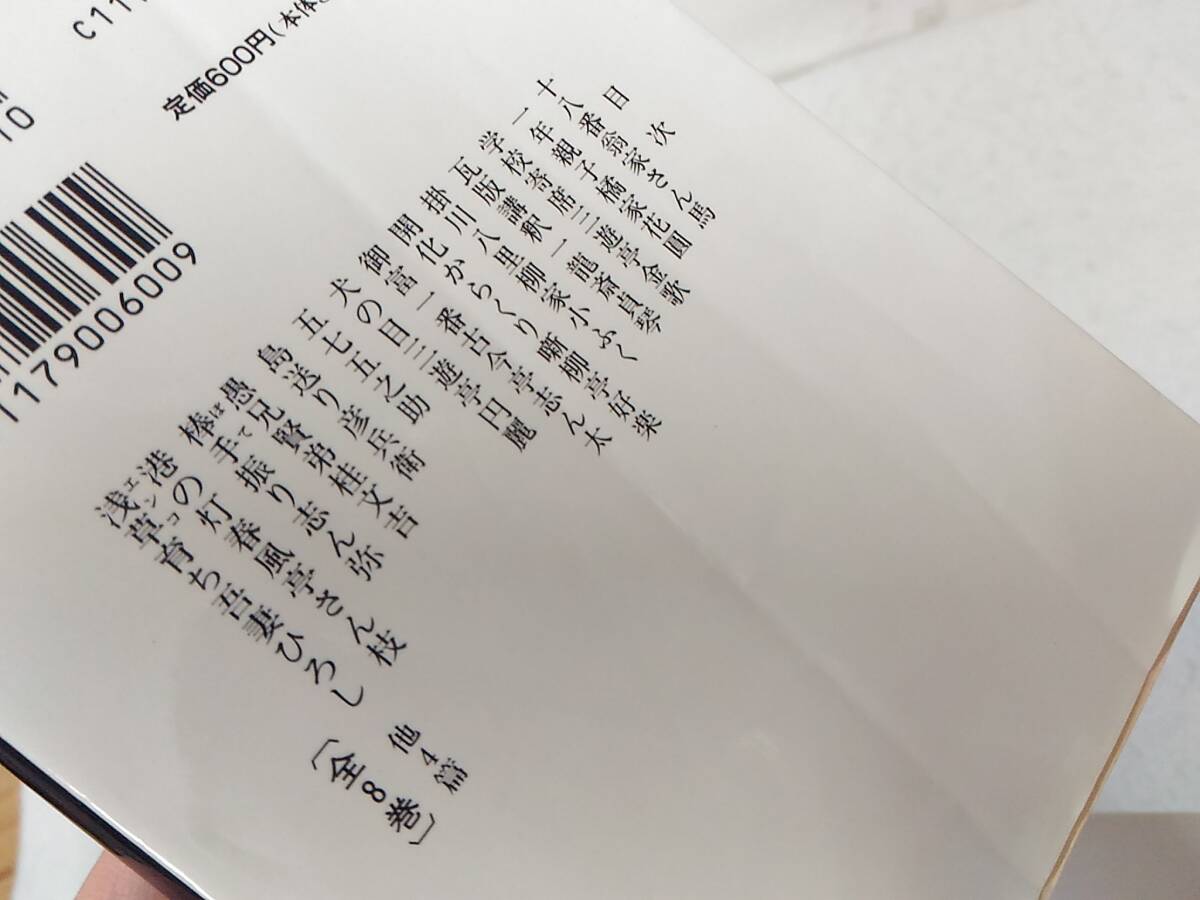 C11
定価600円(本体
10
1179006009
目次
十八番 翁家さん馬
一年親子 橘家花圓
学校寄席 三遊亭金歌
瓦版講釈 一龍斎貞琴
掛川八里 柳家小ふく
開化からくり噺 柳亭好楽
御富一番 古今亭志ん太
犬の目 三遊亭円麗
五七五之助
島送り彦兵衛
愚兄賢弟 桂文吉
棒手振り 志ん弥
港の灯 春風亭さん枝
エンコ
浅草育ち 吾妻ひろし
他4篇
〔全8巻〕